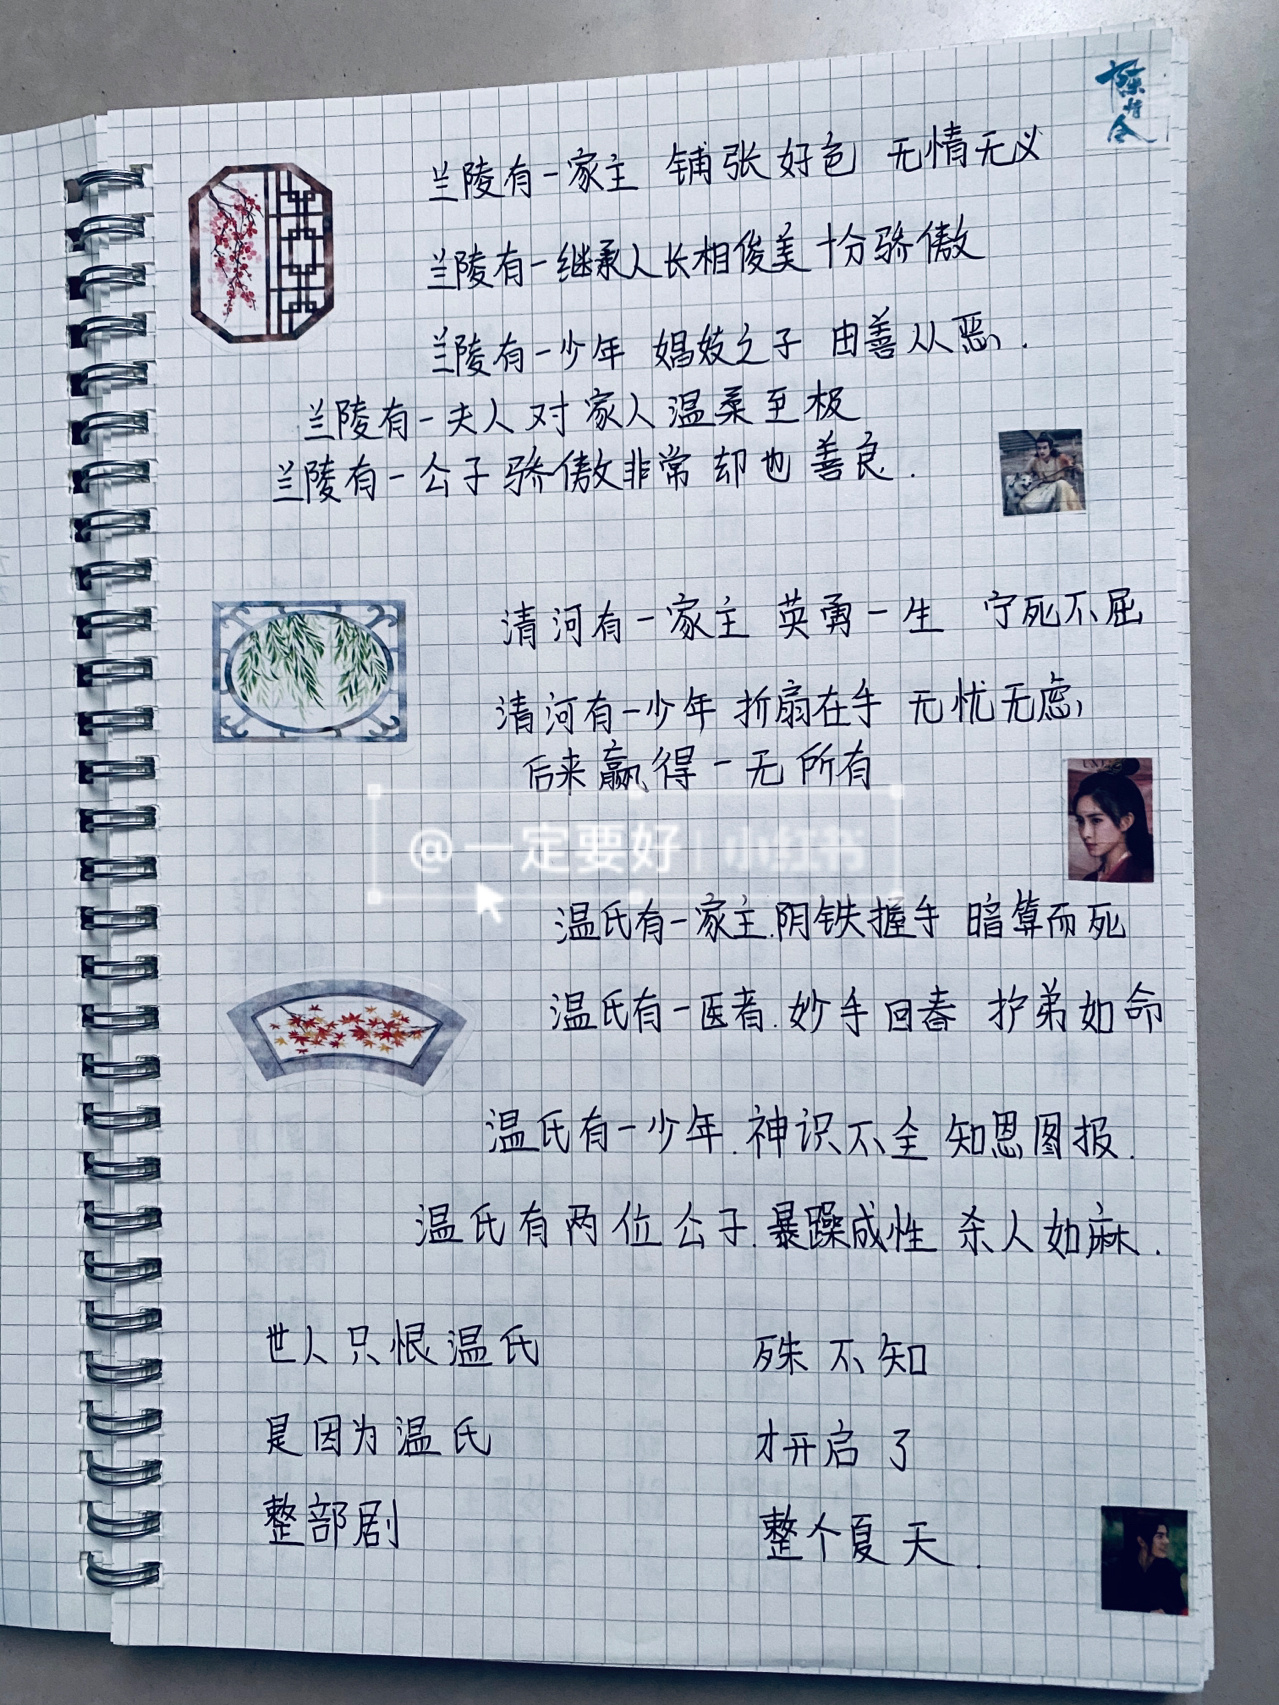 陈情令
兰陵有一家主 铺张好色 无情无义
兰陵有一继承人长相俊美十分骄傲
兰陵有一少年 娼妓之子 由善从恶.
兰陵有一夫人对家人温柔至极
兰陵有一公子骄傲非常却也善良.
清河有一家主 英勇一生 宁死不屈
清河有一少年 折扇在手 无忧无虑,
后来赢得一无所有
@一定要好 | 小红书
温氏有一家主.阴铁握手 暗算而死
温氏有一医者.妙手回春 护弟如命
温氏有一少年.神识不全 知恩图报.
温氏有两位公子.暴躁成性 杀人如麻.
世人只恨温氏 殊不知
是因为温氏 才开启了
整部剧 整个夏天.